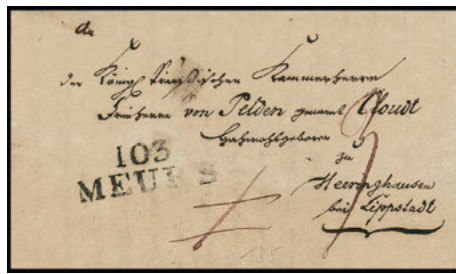 An
den Königl. Preußischen Kammerherrn
Freiherrn von Pelden genannt Cloudt
Hochwohlgeboren
zu
Heeringhausen
bei Lippstadt
103
MEURS
135